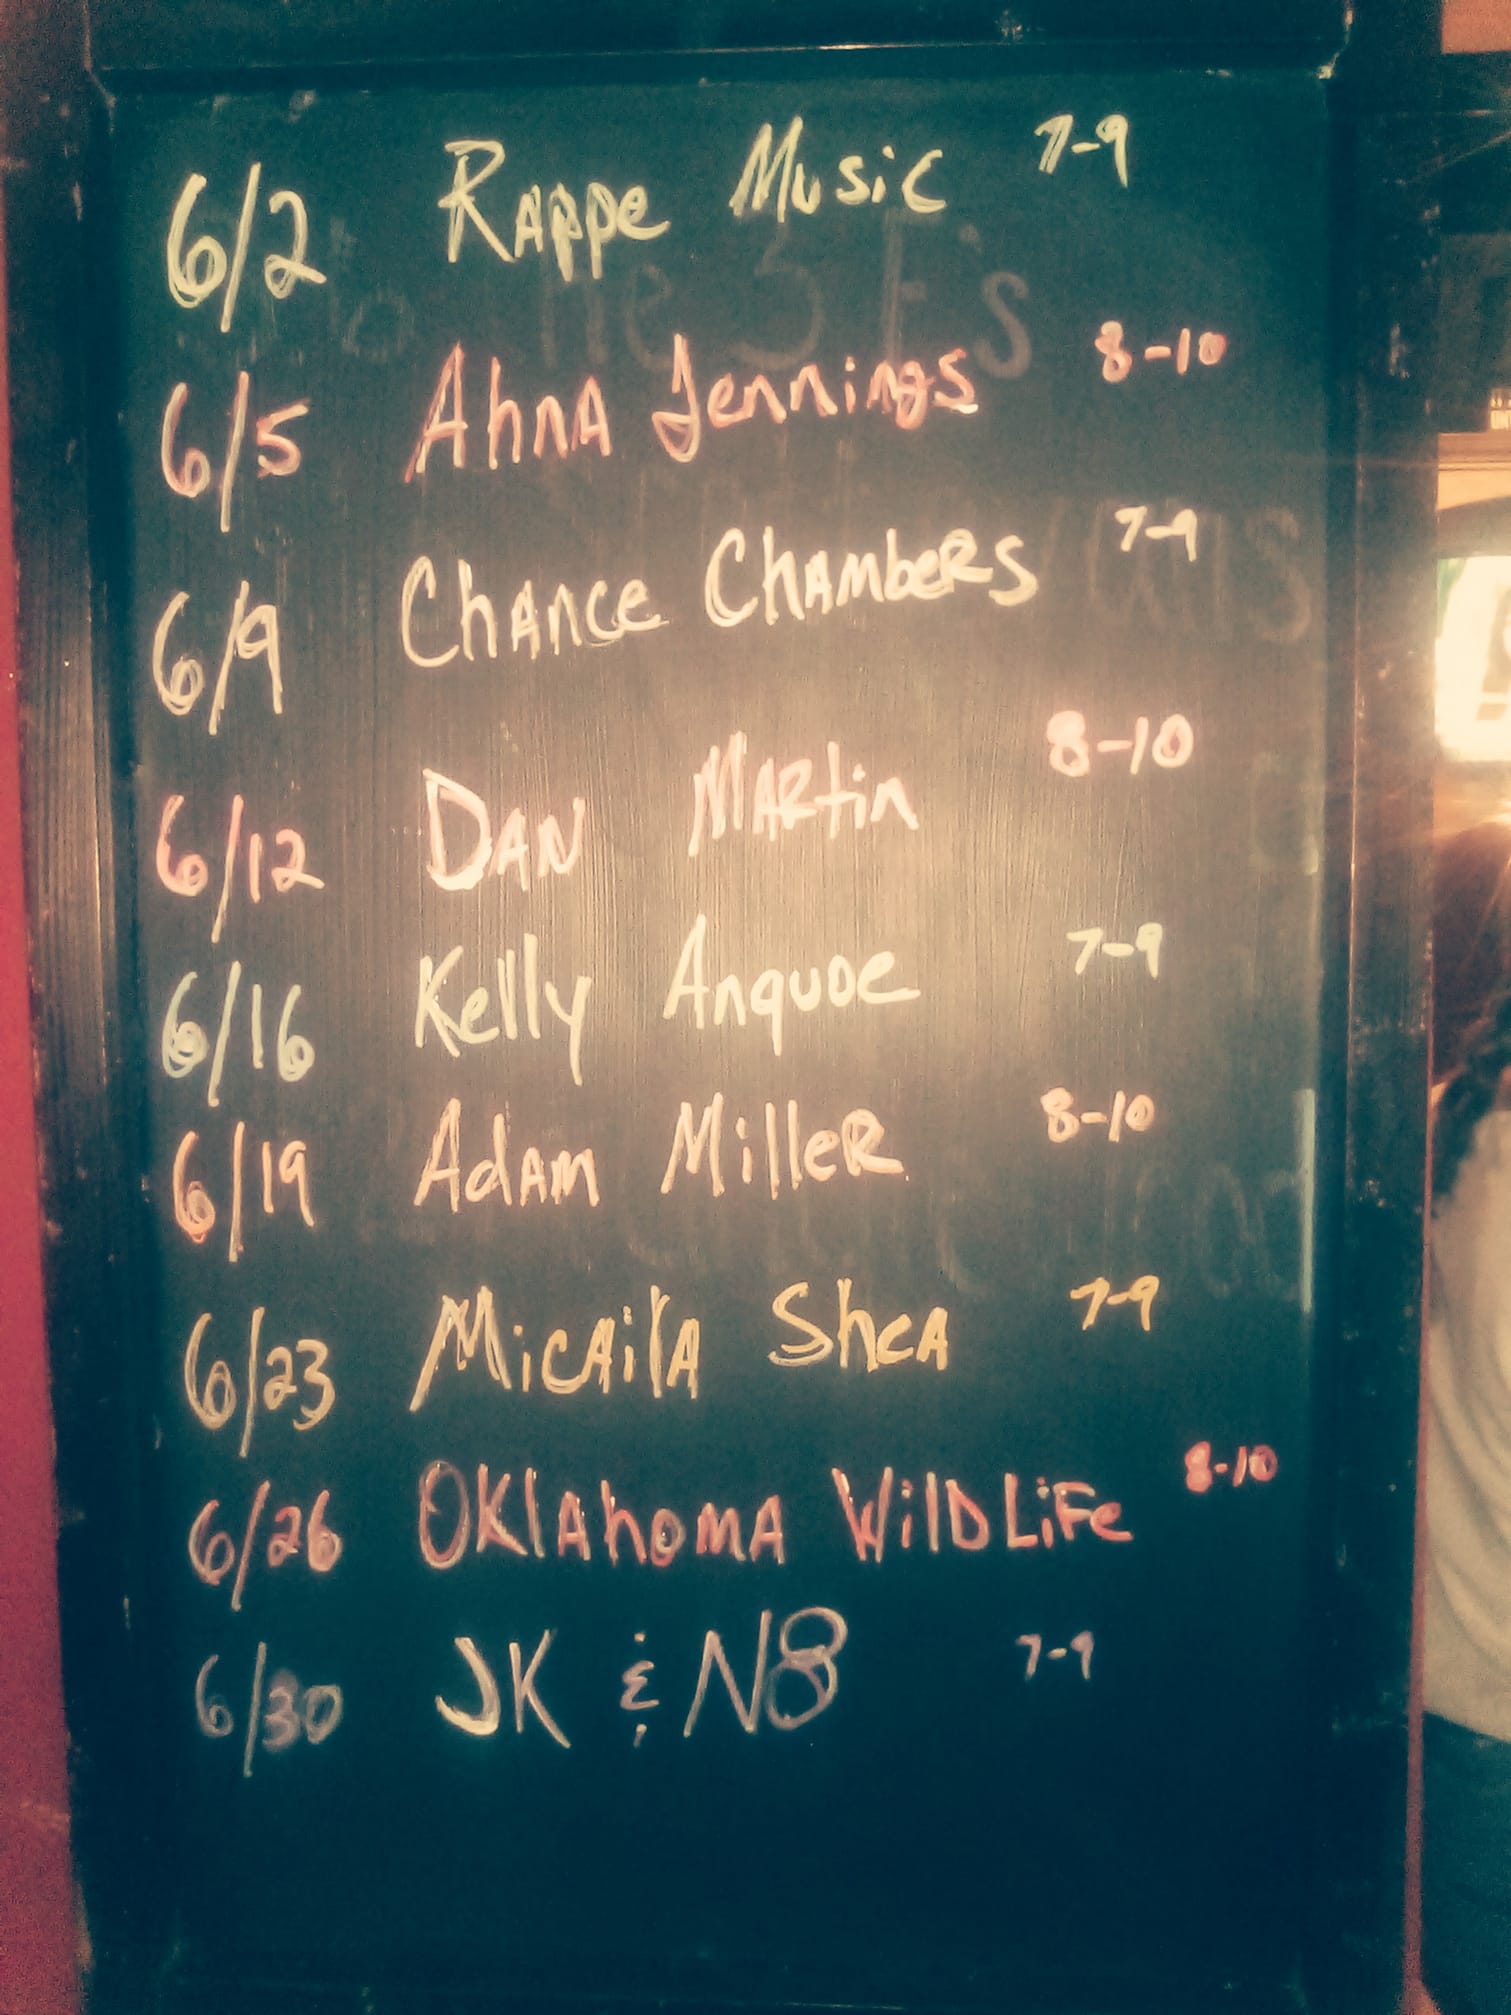 6/2 Rappe Music 7-9
6/5 Ahna Jennings 8-10
6/9 Chance Chambers 7-9
6/12 Dan Martin 8-10
6/16 Kelly Anquoe 7-9
6/19 Adam Miller 8-10
6/23 Micaila Shea 7-9
6/26 Oklahoma WildLife 8-10
6/30 JK & N8 7-9